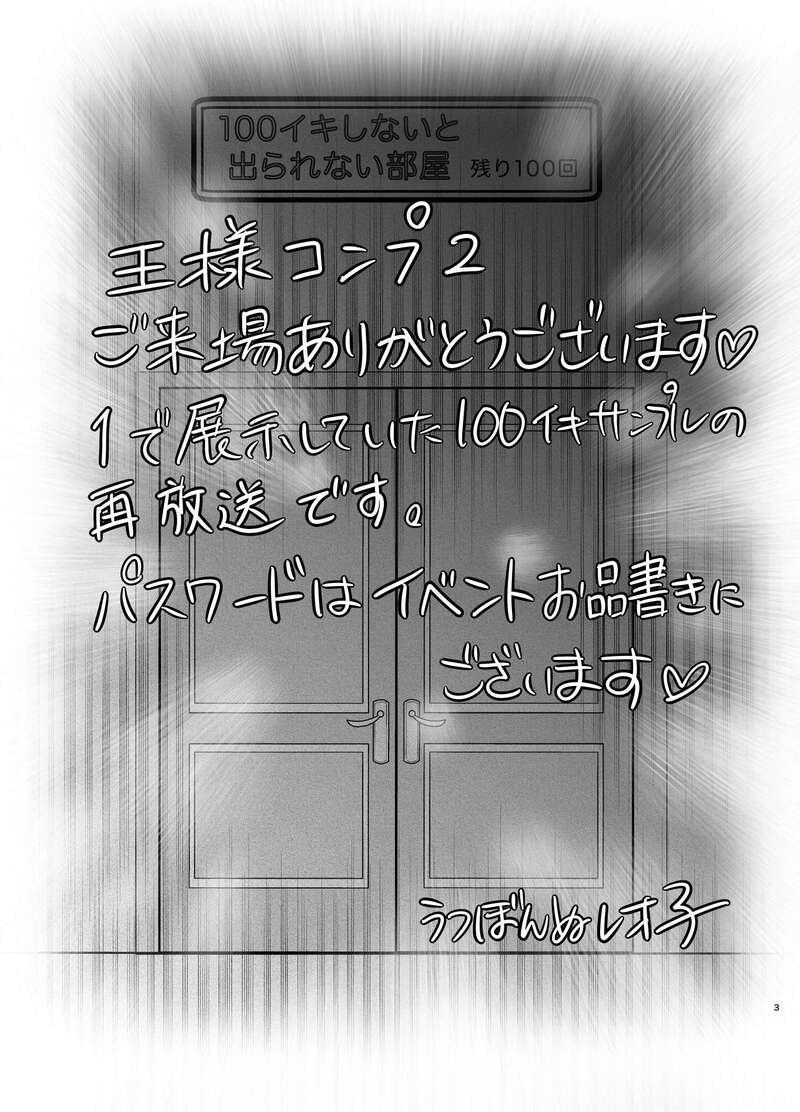 100イキしないと
出られない部屋 残り100回
王様コンプ2
ご来場ありがとうございます♡
1で展示していた100イキサンプルの
再放送です。
パスワードはイベントお品書きに
ございます♡
うつぼんぬレオ子
3